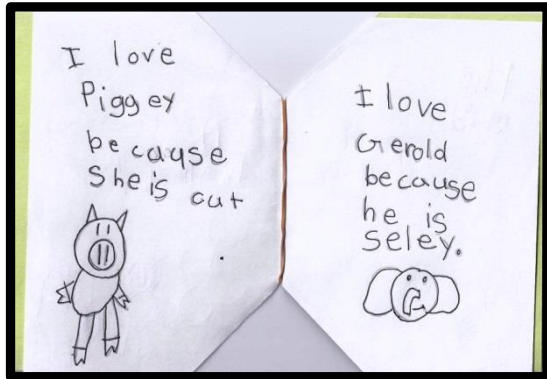 I love
Piggey
because
She is cut
I love
Gerold
because
he is
seley.